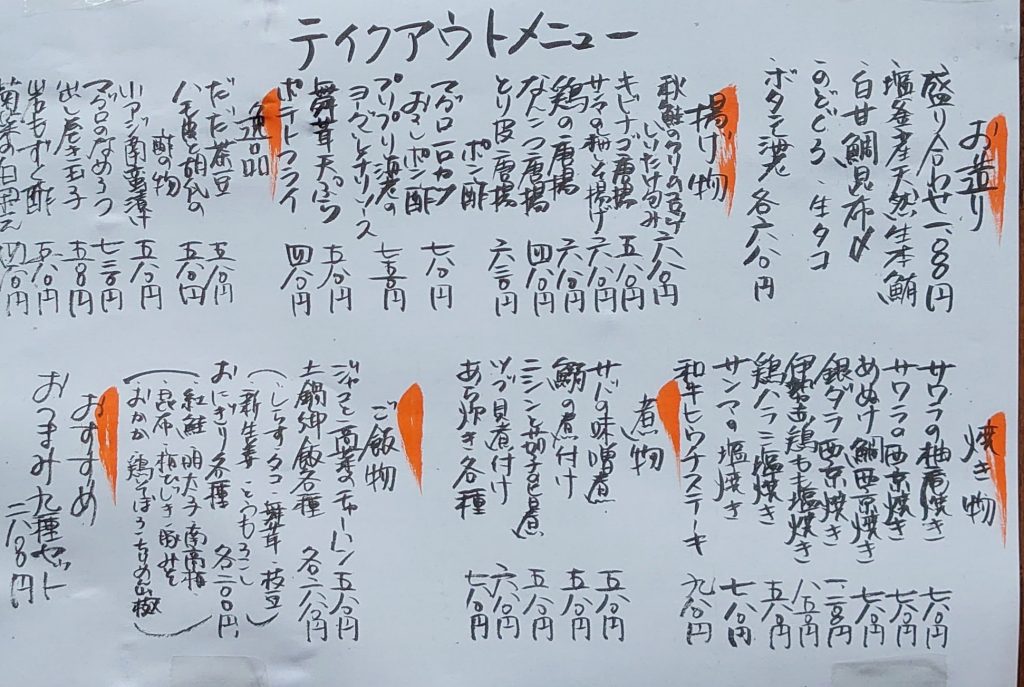 ティクアウトメニュー
お造り
盛り合わせ 一八〇〇円
塩釜産天然生本鮪
白甘鯛昆布〆
のどぐろ 生タコ
ボタン海老 各六八〇円
揚げ物
秋鮭のクリーム
しいたけ包み揚げ 六八〇円
キビナゴ唐揚 五八〇円
サンマの梅しそ揚げ 六八〇円
鶏の唐揚 六八〇円
なんこつ唐揚 四八〇円
とり皮唐揚 六三〇円
ポン酢
マグロ一口カツ
おろしポン酢 七八〇円
プリプリ海老の
ヨーグルトチリソース 七三〇円
舞茸天ぷら 五八〇円
ポテトフライ 四八〇円
逸品
だだ茶豆 五八〇円
ハモ皮と胡瓜の
酢の物 五八〇円
小アジ南蛮漬け 五八〇円
マグロのなめろう 七三〇円
出し巻き玉子 五八〇円
岩もずく酢 五八〇円
菊菜の白和え 四八〇円
焼き物
サワラの柚庵焼き 七八〇円
サワラの西京焼き 七八〇円
あぬけ鯛西京焼き 七八〇円
銀ダラ西京焼き 一二八〇円
伊勢赤鶏もも塩焼き 八五〇円
鶏ハラミ塩焼き 五八〇円
サンマの塩焼き 七八〇円
和牛ヒウチステーキ 九八〇円
煮物
サバの味噌煮 五八〇円
鮪の煮付け 五八〇円
ニシンと茄子の煮 五八〇円
ツブ貝煮付け 六八〇円
あら炊き各種 七八〇円
ご飯物
ジャコと高菜のチャーハン 五八〇円
土鍋御飯各種 各六八〇円
(しらす・タコ・舞茸・枝豆
新生姜・とうもろこし)
おにぎり各種 各二〇〇円
(紅鮭・明太子・南高梅
昆布・梅ひじき・豚みそ
おかか・鶏そぼろ・ちりめん山椒)
おすすめ
おつまみ九種セット
二八〇〇円